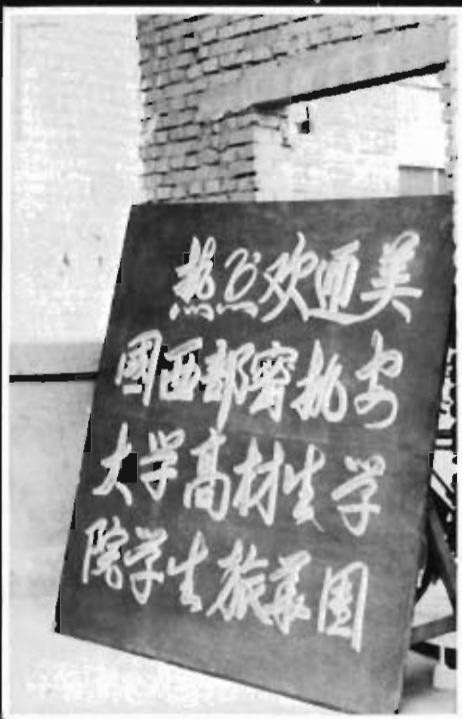 热烈欢迎美
國西部密执安
大学高材生学
院学生旅華团